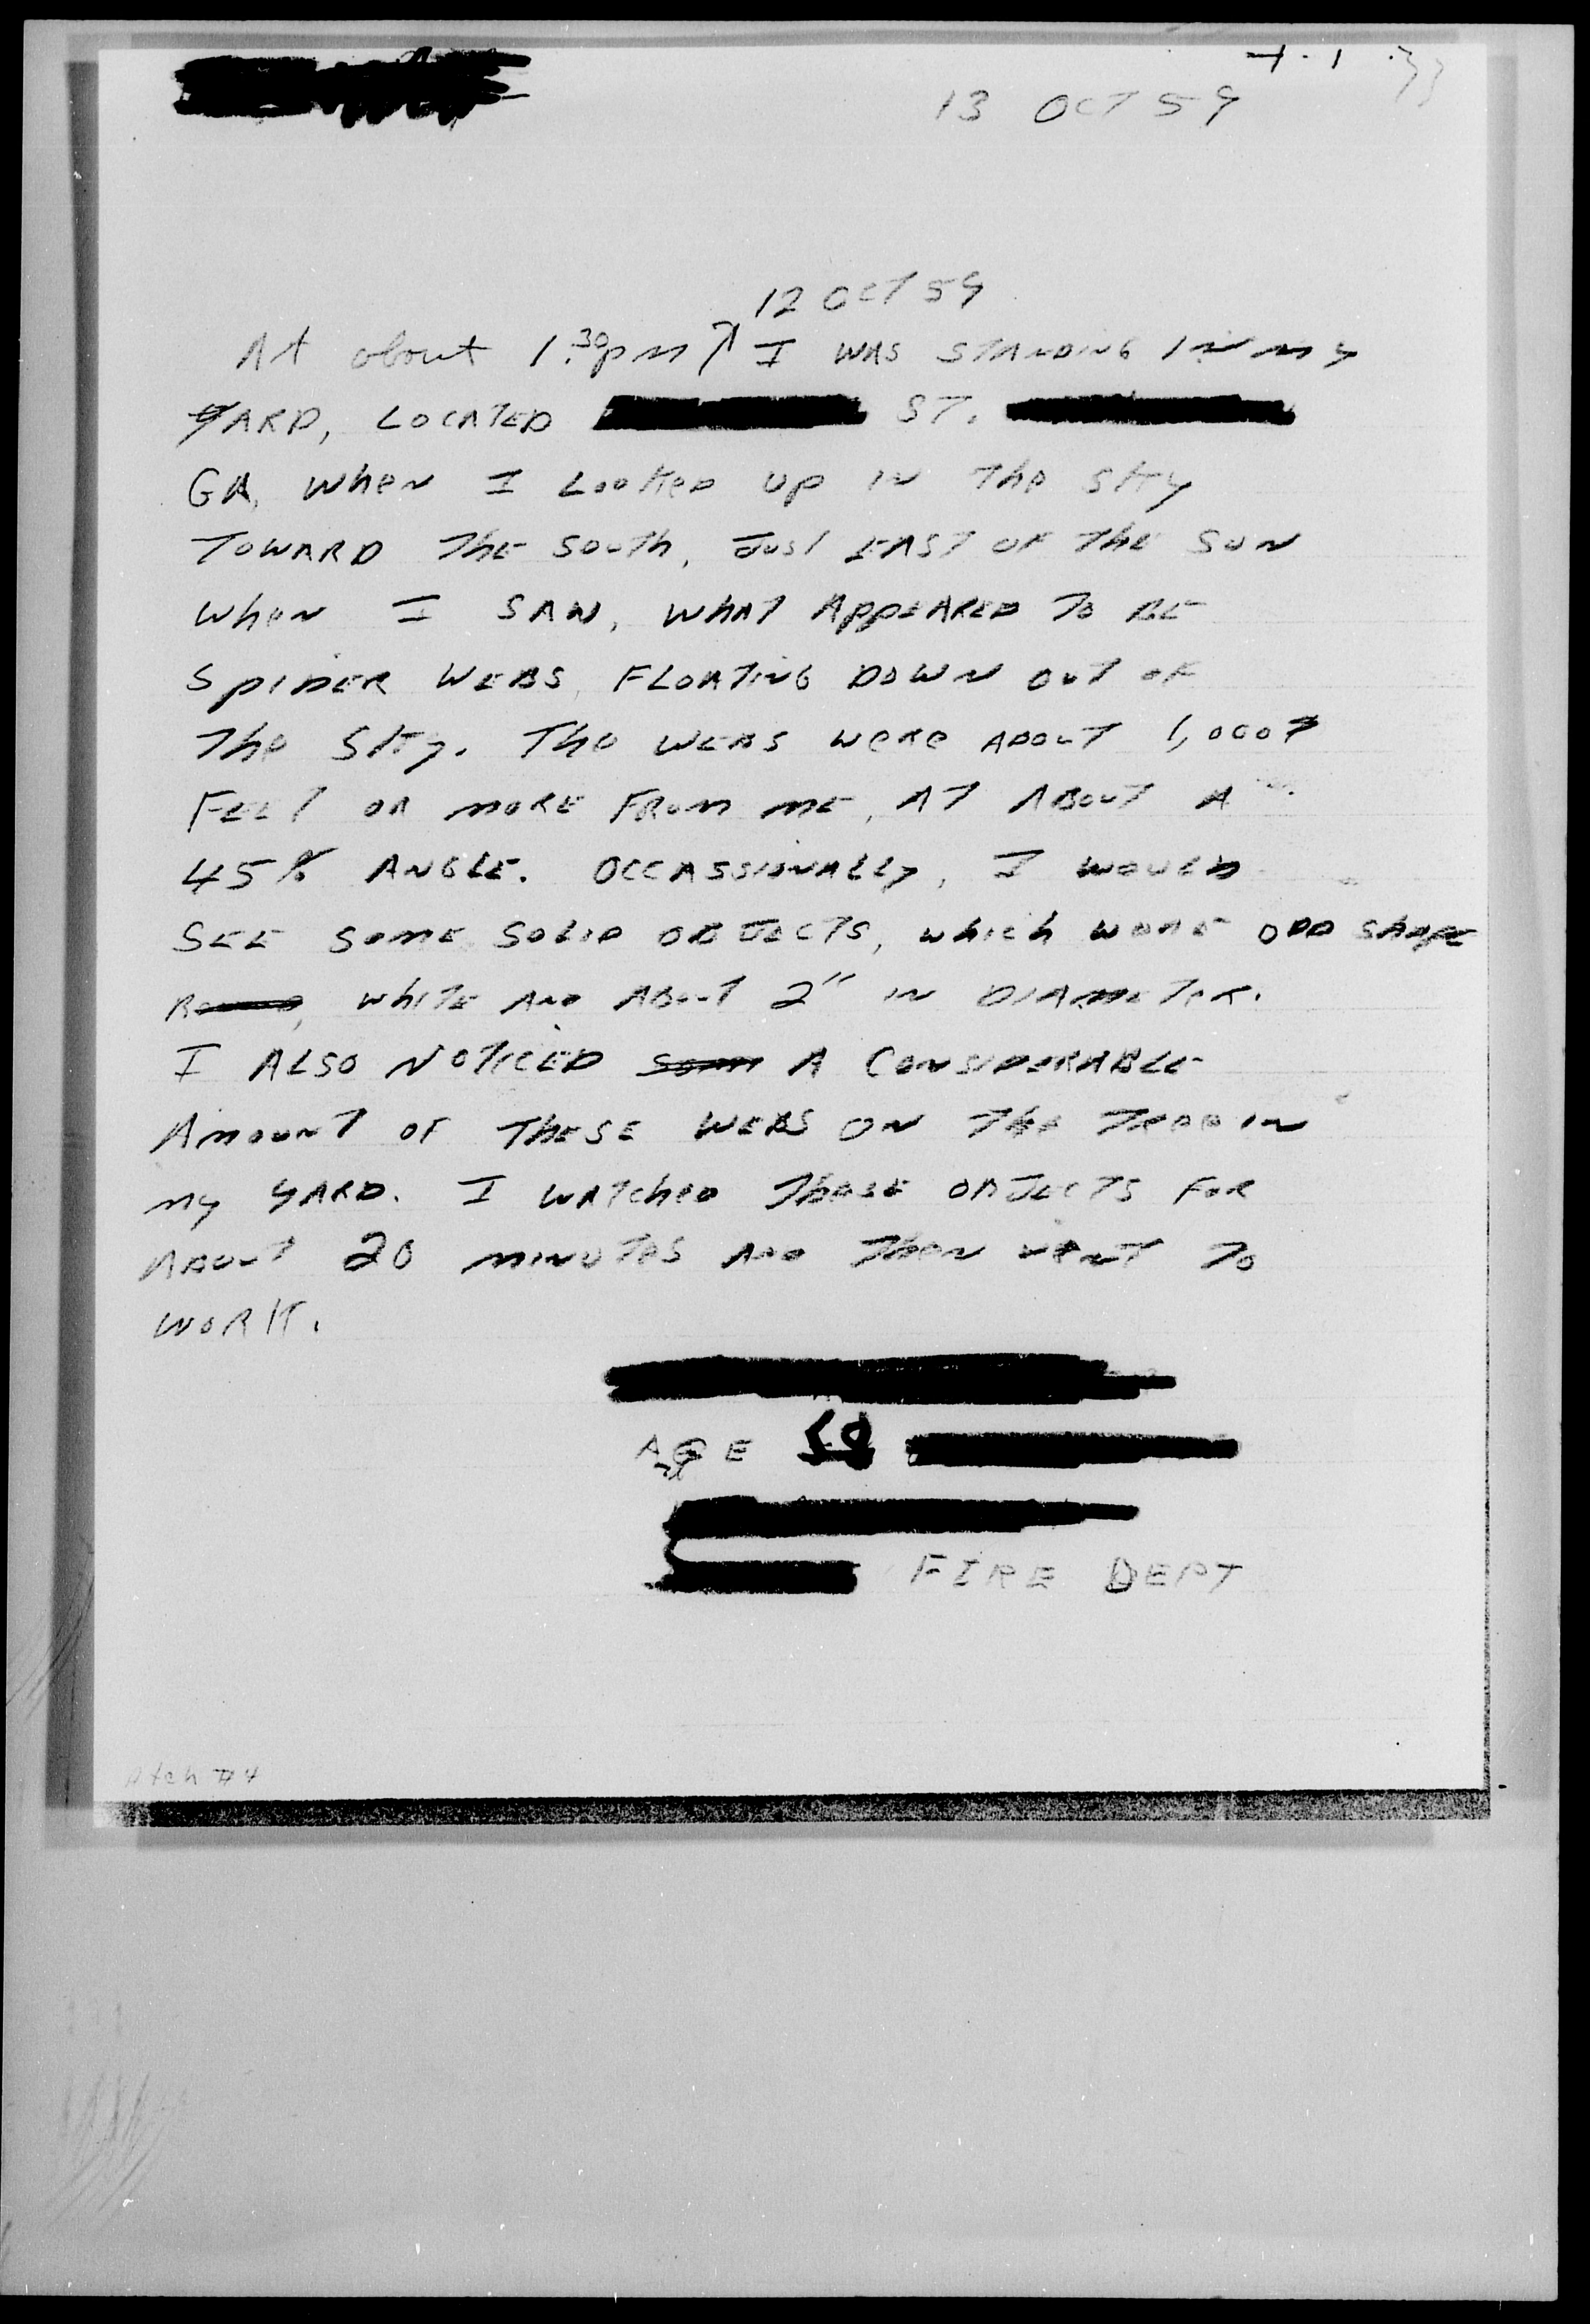 13 OCT 59
12 OCT 59
At about 1:30pm I WAS STANDING IN MY
YARD, LOCATED ST.
GA, WheN I LOOKeD UP IN The SKY
TOWARD The SOUTh, JUST EAST OF The SUN
WheN I SAW, WHAT APPEARED TO BE
SPIDER WEBS, FLOATING DOWN OUT OF
The SKY. The WEBS WeRe ABOUT 1,000
FEET OR MORE FROM ME, AT ABOUT A
45% ANGLE. OCCASSIONALLY, I WOULD
SEE SOME SOLID OBJECTS, which WERE ODD SHAPE
, WhITE AND ABOUT 2" IN DIAMETER.
I ALSO NOTICED som A CONSIDERABLE
AMOUNT OF THESE WEBS ON The TREE IN
MY YARD. I WATCheD ThESE OBJECTS FOR
ABOUT 20 MINUTES AND TheN WENT TO
WORK.
AGE 58
FIRE DEPT
Atch #4